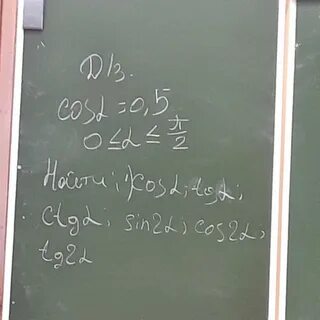 D/з.
cosα = 0,5
0 ≤ α ≤ π/2
Найти: 1) cosα; tgα;
ctgα; sin2α; cos2α;
tg2α